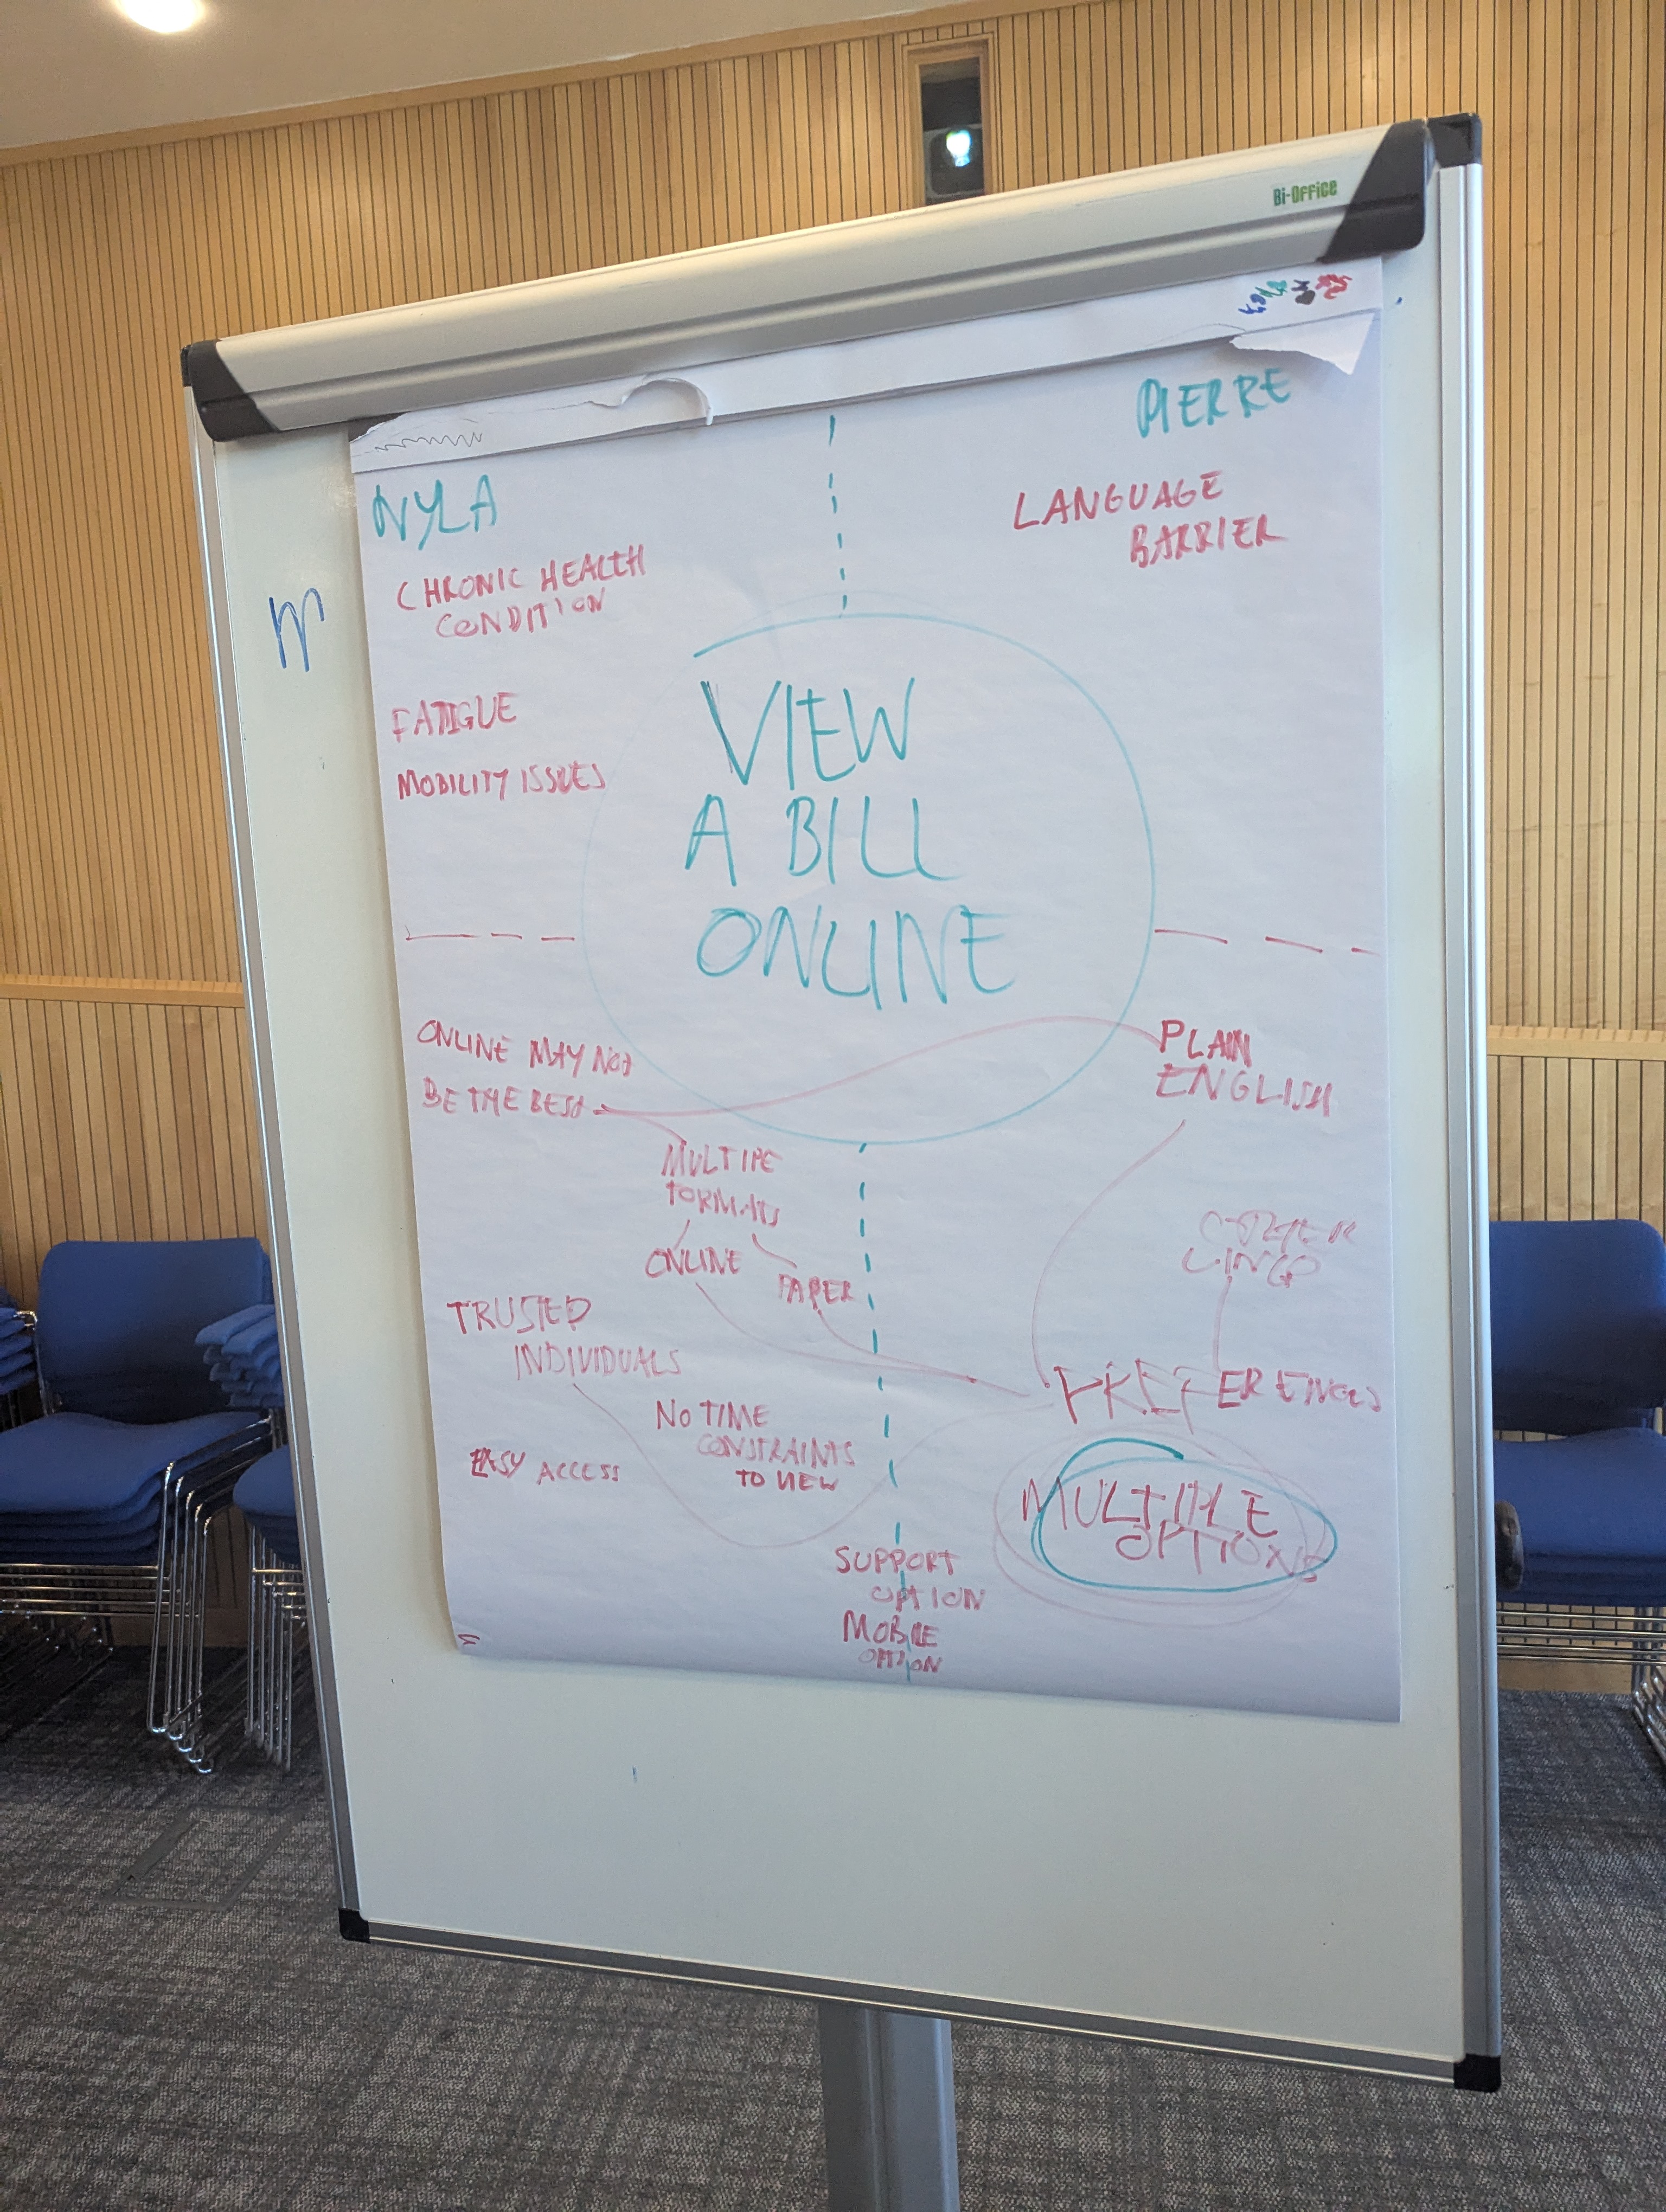 Bi-Office
PIERRE
NYLA
LANGUAGE
BARRIER
CHRONIC HEALTH
CONDITION
FATIGUE
MOBILITY ISSUES
VIEW
A BILL
ONLINE
ONLINE MAY NOT
BE THE BEST
PLAIN
ENGLISH
MULTIPE
FORMATS
ONLINE
PAPER
OTHER
LINGO
TRUSTED
INDIVIDUALS
PREFERENCES
NO TIME
CONSTRAINTS
TO VIEW
EASY ACCESS
MULTIPLE
OPTIONS
SUPPORT
OPTION
MOBILE
OPTION